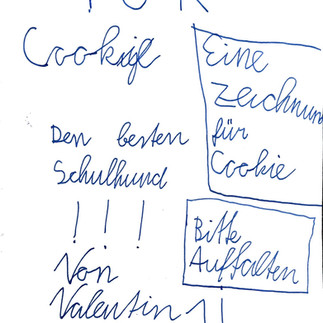 FÜR
Cookie
Den besten
Schulhund
! ! !
Von
Valentin
Eine
Zeichnung
für
Cookie
Bitte
Auffalten